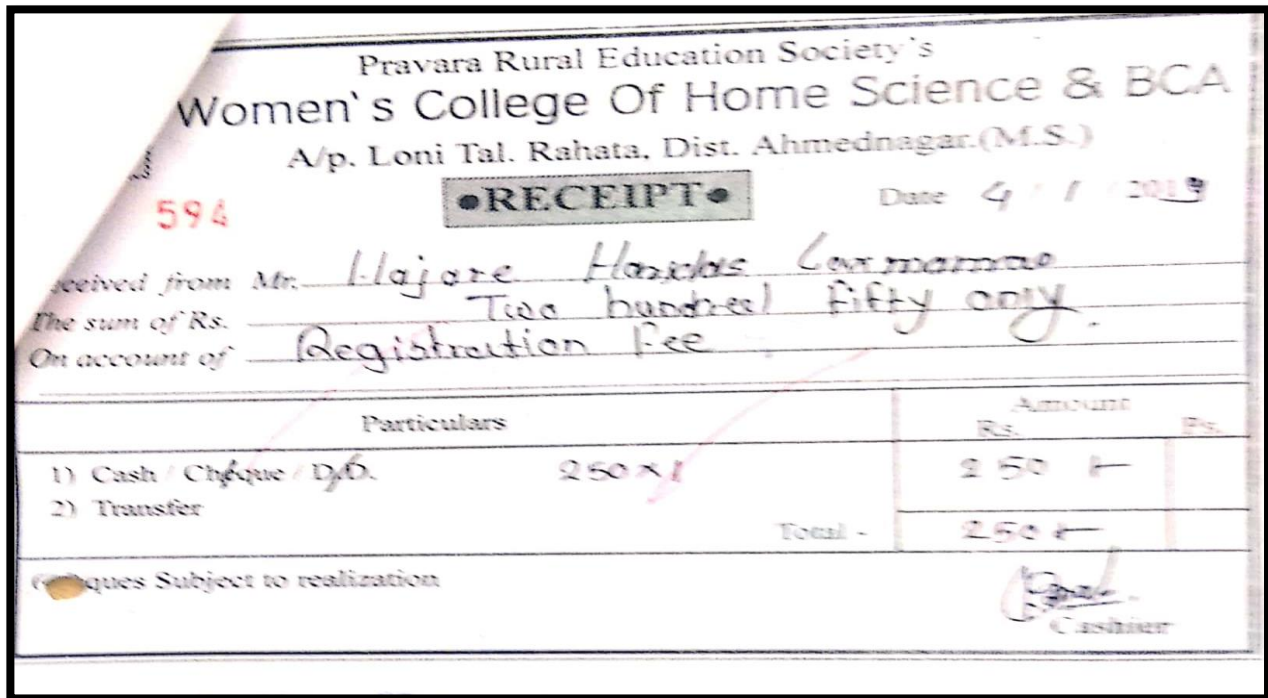 Pravara Rural Education Society's
Women's College Of Home Science & BCA
A/p. Loni Tal. Rahata, Dist. Ahmednagar.(M.S.)
594 •RECEIPT• Date 4 / 1 / 2019
ceived from Mr. Hajare Haridas Laxmanrao
The sum of Rs. Two hundred fifty only.
On account of Registration Fee
Particulars Amount
Rs. Ps.
1) Cash / Cheque / D.D. 250 x 1 250
2) Transfer
Total - 250
ques Subject to realization
Cashier